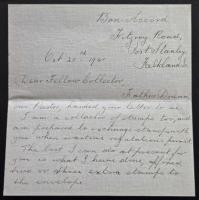 Bon Accord
Fitzroy Road,
Port Stanley
Falkland Is
Oct 20th 194
Dear Fellow Collector
Father
our Pastor, handed your letter to me.
I am a collector of stamps too, and
am prepared to exchange stamps with
you when wartime regulations permit.
The best I can do at present for
you is what I have done, affixed
two or three extra stamps to
the envelope